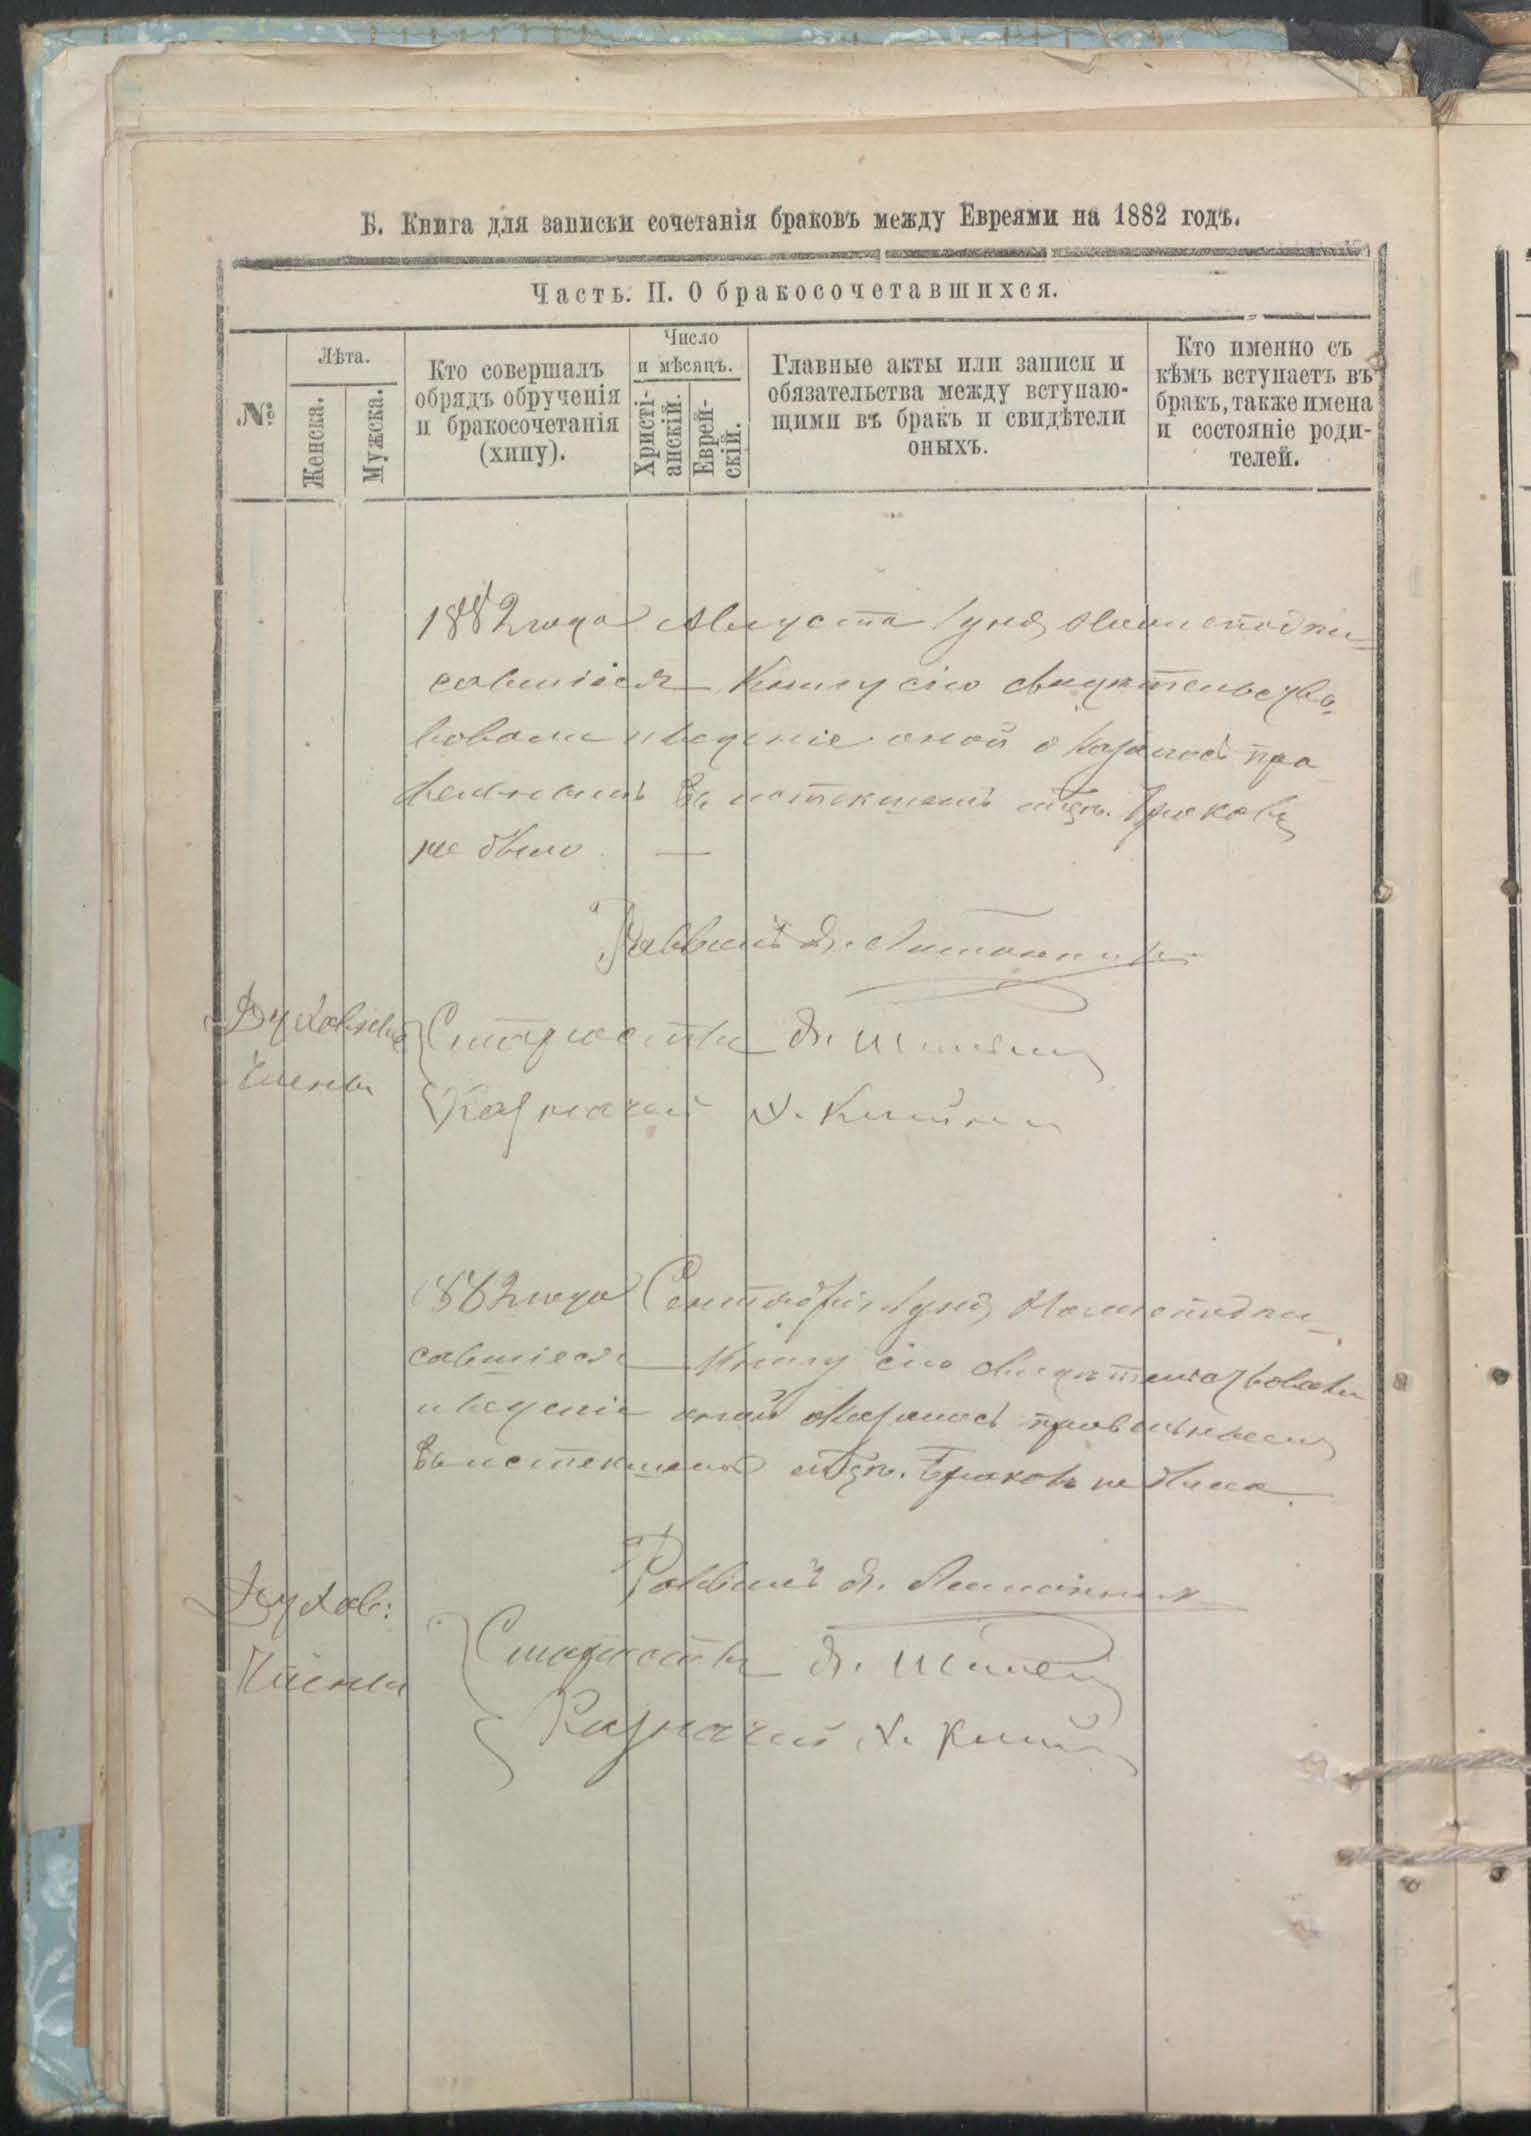 Б. Книга для записки сочетанія браковъ между Евреями на 1882 годъ.
Часть. II. О бракосочетавшихся.
№
Лѣта.
Женска.
Мужска.
Кто совершалъ
обрядъ обрученія
и бракосочетанія
(хипу).
Число
и мѣсяцъ.
Христі-
анскій.
Еврей-
скій.
Главные акты или записи и
обязательства между вступаю-
щими въ бракъ и свидѣтели
оныхъ.
Кто именно съ
кѣмъ вступаетъ въ
бракъ, также имена
и состояніе роди-
телей.
1882 года Августа 1 дня Мы нижеподпи-
савшіеся Книгу сію свидѣтельство-
вовали и веденіе оной оказалось пра-
вильнымъ въ истекшемъ мѣц. Браковъ
не было —
Раввинъ
Духовные
Члены
Староста
Казначей
1882 года Сентября 1 дня Мы нижеподпи-
савшіеся Книгу сію свидѣтельствовали
и веденіе оной оказалось правильнымъ
въ истекшемъ мѣц. Браковъ не было
Раввинъ
Духов:
Члены
Староста
Казначей